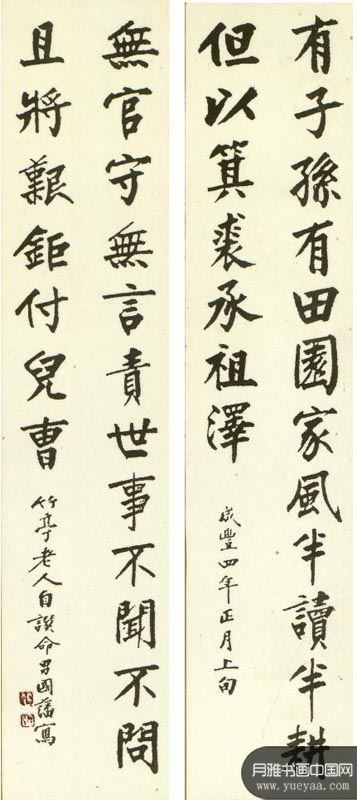 有子孫有田園家風半讀半耕
但以箕裘承祖澤
咸豐四年正月上旬
無官守無言責世事不聞不問
且將艱鉅付兒曹
竹亭老人自譔命男國藩寫
月雅书画中国网
www.yueyaa.com